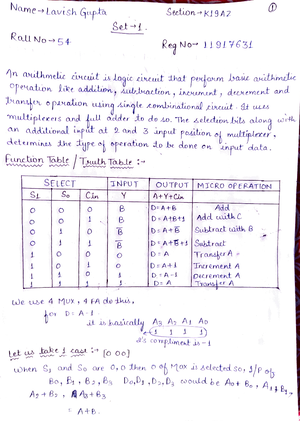 Name → Lavish Gupta Section → K19AZ ①
Set → 1.
Roll No → 54 Reg No → 11917631
An arithmetic circuit is logic circuit that perform basic arithmetic
operation like addition, subtraction, increment, decrement and
transfer operation using single combinational circuit. It uses
multiplexers and full adder to do so. The selection bits along with
an additional input at 2 and 3 input position of multiplexer.
determines the type of operation to be done on input data.
Function Table / Truth Table :-
SELECT INPUT OUTPUT MICRO OPERATION
S1 S0 Cin Y A+Y+Cin
0 0 0 B D=A+B Add
0 0 1 B D=A+B+1 Add with C
0 1 0 B̅ D=A+B̅ Subtract with B
0 1 1 B̅ D=A+B̅+1 Subtract
1 0 0 0 D=A Transfer A
1 0 1 0 D=A+1 Increment A
1 1 0 1 D=A-1 Decrement A
1 1 1 1 D=A Transfer A
We use 4 MUX, 4 FA do this,
for D=A-1
it is basically A3 A2 A1 A0
(1 1 1 1)
it's compliment is -1
Let us take 1 case :→ [0 00]
When S1 and S0 are 0,0 then 0 of Mux is selected so, I/P of
B0, B1, B2, B3 D0, D1, D2, D3 would be A0+B0, A1+B1,
A2+B2, A3+B3
= A+B.